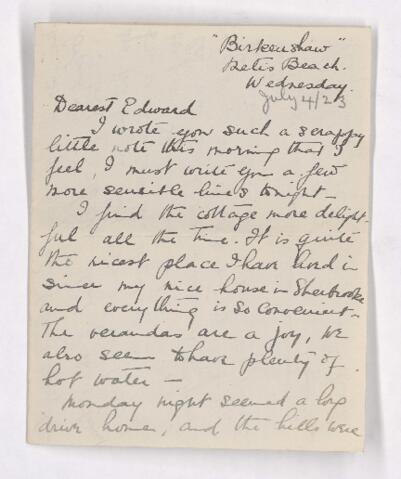 "Birkenshaw"
Metis Beach.
Wednesday.
July 4/23
Dearest Edward
I wrote you such a scrappy
little note this morning that I
feel, I must write you a few
more sensible lines tonight –
I find the cottage more delight-
ful all the time. It is quite
the nicest place I have lived in
since my nice house in Sherbrooke
and everything is so convenient –
The verandas are a joy, we
also seem to have plenty of
hot water –
Monday night seemed a long
drive home, and the hills were